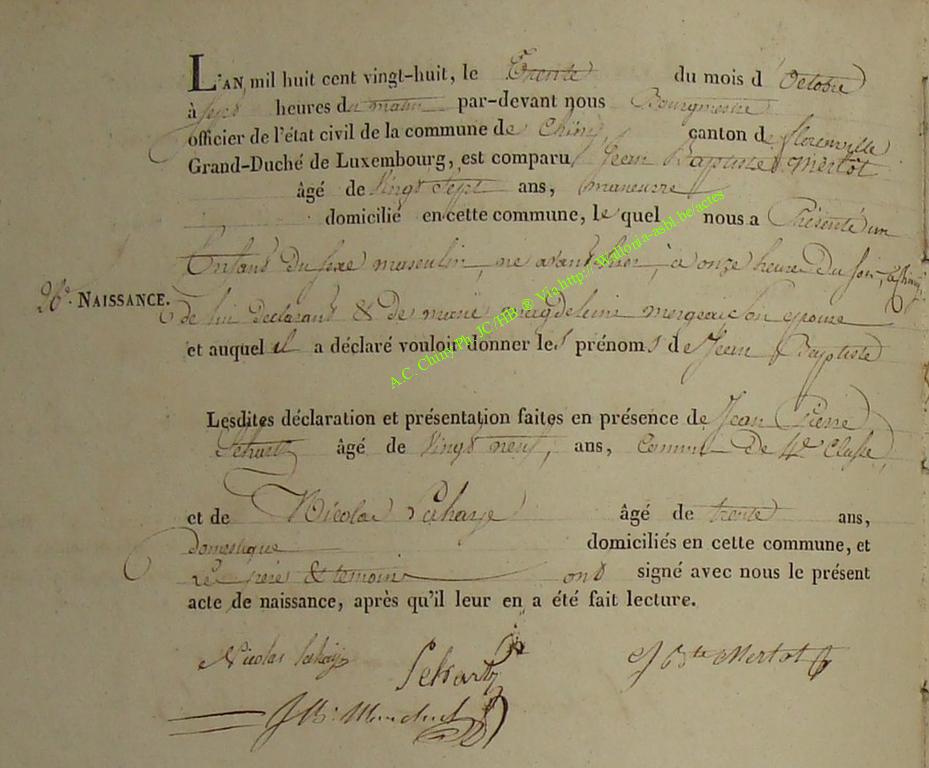 L'AN mil huit cent vingt-huit, le Trente du mois d'Octobre
à sept heures du matin par-devant nous Bourgmestre
officier de l'état civil de la commune de Chiny, canton de florenville
Grand-Duché de Luxembourg, est comparu Jean Baptiste Mertot
âgé de vingt sept ans, maneuvre
domicilié en cette commune, le quel nous a Présenté un
Enfant du sexe masculin, né avant hier, à onze heure du soir,
26e. NAISSANCE.
de lui declarant & de marie magdeleine son epouse
et auquel il a déclaré vouloir donner les prénoms de Jean Baptiste
Lesdites déclaration et présentation faites en présence de Jean Pierre
âgé de vingt neuf, ans, Commis De 4e Classe,
et de Nicolas Lahaye âgé de trente ans,
domestique domiciliés en cette commune, et
Le père & temoins ont signé avec nous le présent
acte de naissance, après qu'il leur en a été fait lecture.
Nicolas lahaye J Bte Mertot
A.C. Chiny Ph. JC/HB ® Via http://Wallonia-asbl.be/actes